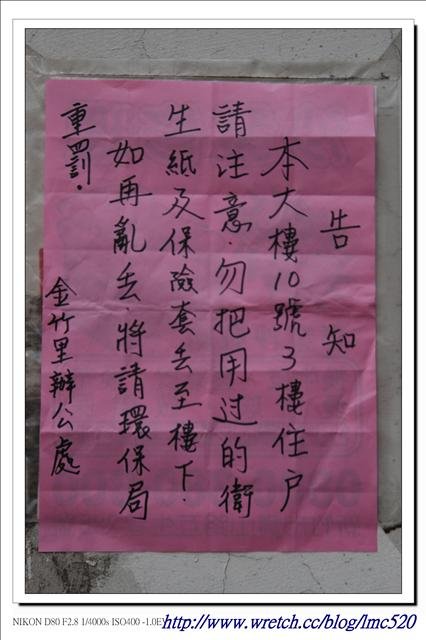 告知
本大樓10號3樓住戶
請注意．勿把用过的衛
生紙及保險套丟至樓下．
如再亂丟．將請環保局
重罰．
金竹里辦公處
NIKON D80 F2.8 1/4000s ISO400 -1.0EV
http://www.wretch.cc/blog/lmc520